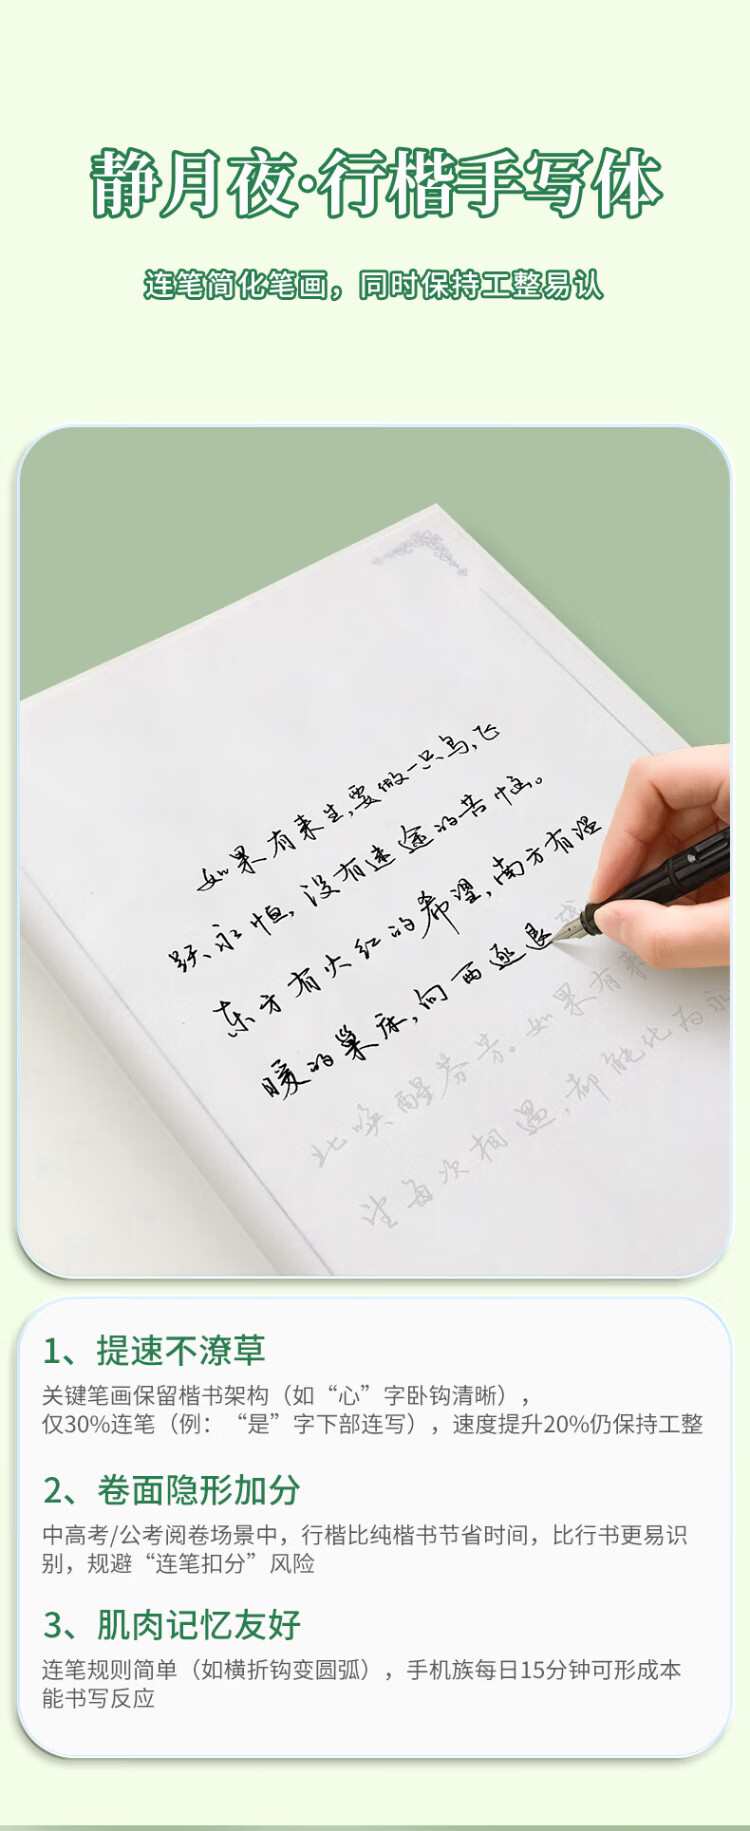 静月夜·行楷手写体
连笔简化笔画，同时保持工整易认
如果有来生,要做一只鸟,飞
跃永恒,没有迷途的苦恼。
东方有火红的希望,南方有温
暖的巢床,向西逐退
此唤醒芬芳。如果有来
望每次相遇,都能化为永
1、提速不潦草
关键笔画保留楷书架构（如“心”字卧钩清晰），
仅30%连笔（例：“是”字下部连写），速度提升20%仍保持工整
2、卷面隐形加分
中高考/公考阅卷场景中，行楷比纯楷书节省时间，比行书更易识
别，规避“连笔扣分”风险
3、肌肉记忆友好
连笔规则简单（如横折钩变圆弧），手机族每日15分钟可形成本
能书写反应